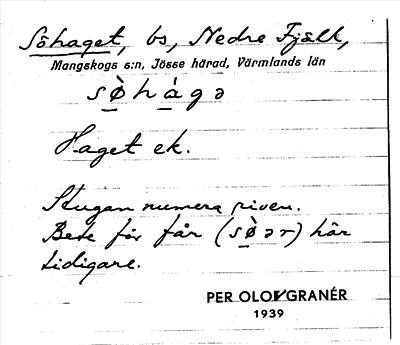 Söhaget, bs, Nedre Fjäll,
Mangskogs s:n, Jösse härad, Värmlands län
sø̀hàgə
Haget ek.
Stugan numera riven.
Bete för får (sø̀ər) här
tidigare.
PER OLOF GRANÉR
1939